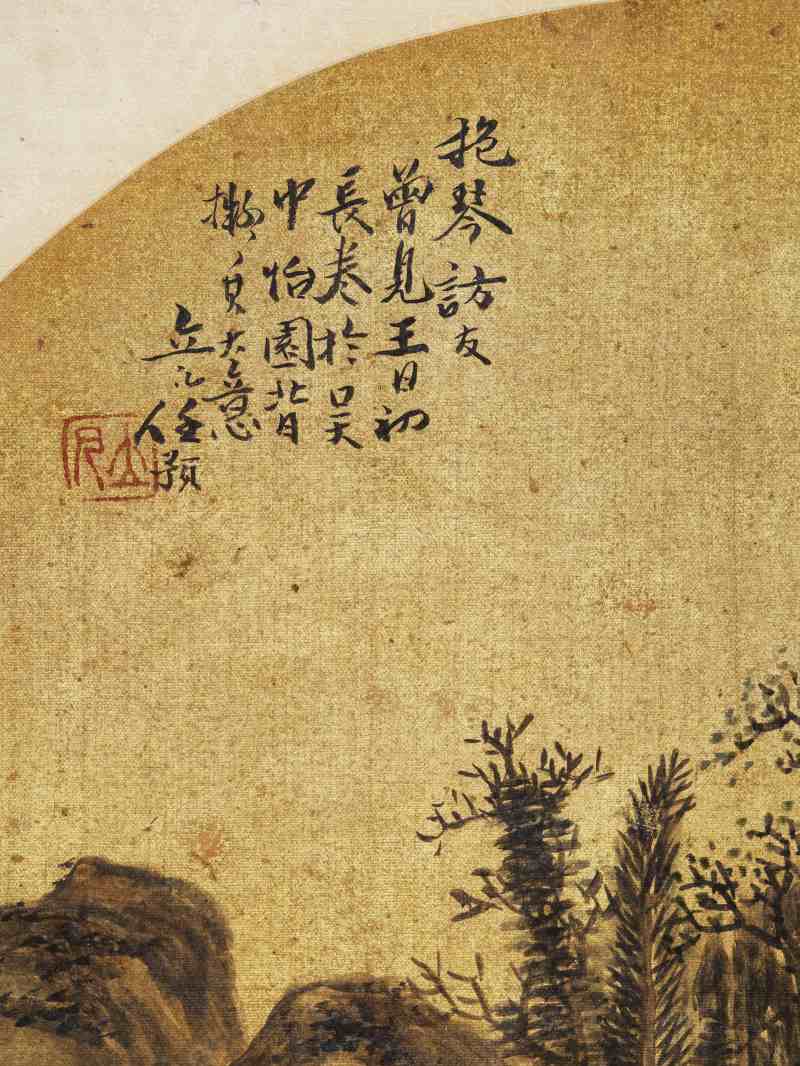 抱琴訪友
曾見王日初
長卷於吳
中怡園背
擬其大意
立凡任預
立凡